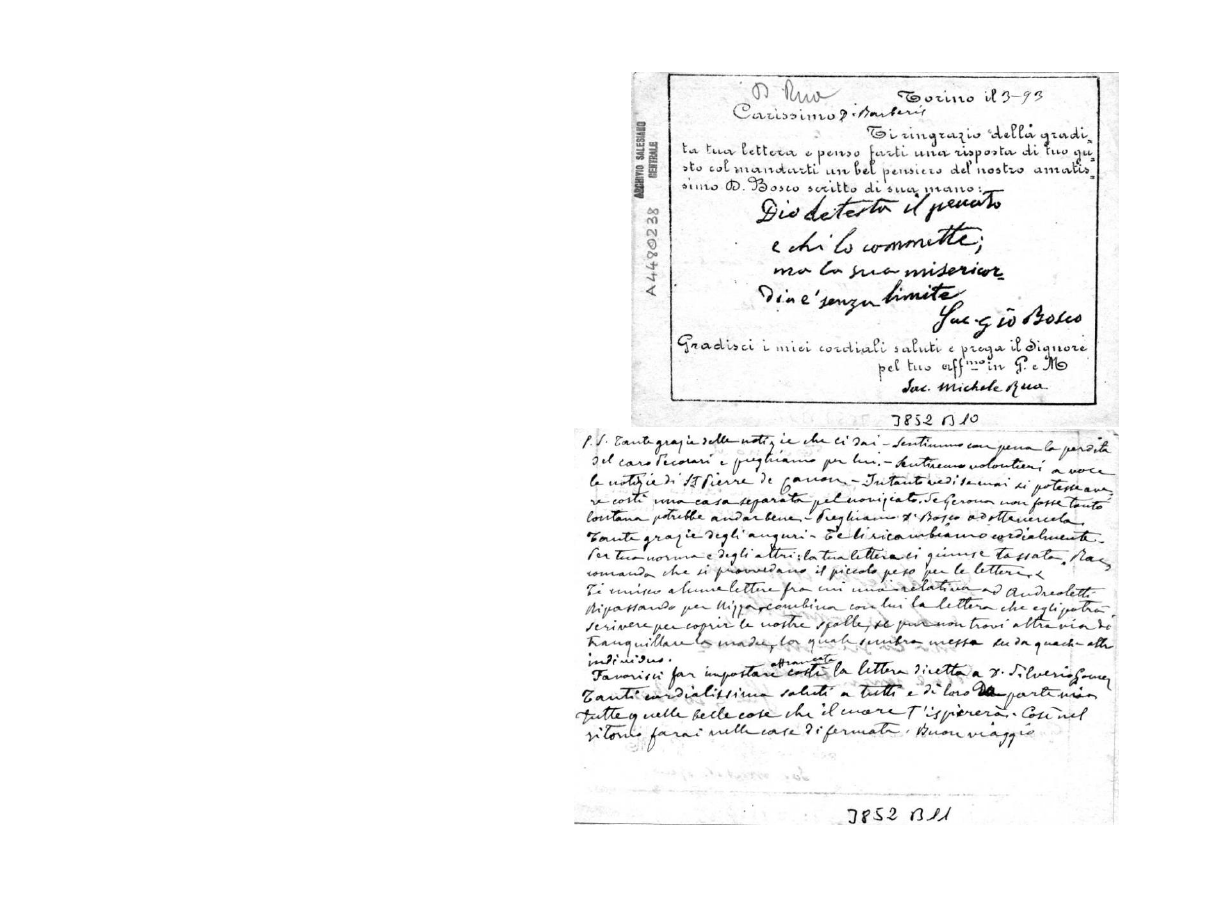 D Rua
Torino il 3-93
Carissimo D. Barberis
Ti ringrazio della gradi„
ta tua lettera e penso farti una risposta di tuo gu„
sto col mandarti un bel pensiero del nostro amatis„
simo D. Bosco scritto di sua mano:
Dio detesta il peccato
e chi lo commette;
ma la sua misericor„
dia è senza limite
Sac. Gio Bosco
Gradisci i miei cordiali saluti e prega il Signore
pel tuo aff.mo in G. e M
Sac. Michele Rua
ARCHIVIO SALESIANO
CENTRALE
A4480238
3852 B10
P.S. Tante grazie delle notizie che ci dai - Sentimmo con pena la perdita
del caro Pecorari e preghiamo per lui. - Sentiremo volontieri a voce
le notizie di St Pierre de Canon. - Intanto vedi se mai si potesse ave„
re costì una casa separata pel noviziato. Se Gerona non fosse tanto
lontana potrebbe andar bene. - Preghiamo D. Bosco ad ottenercela.
Tante grazie degli auguri - Te li ricambiamo cordialmente.
Per tua norma e degli altri: la tua lettera ci giunse tassata. Rac„
comanda che si provvedano il piccolo peso per le lettere.
Ti unisco alcune lettere fra cui una relativa ad Andreoletti.
Ripassando per Nizza, combina con lui la lettera che egli potrà
scrivere per coprir le nostre spalle, se pur non trovi altra via di
tranquillare la madre, la quale sembra messa su da qualche altro
individuo.
Favorisci far impostare costì affrancata la lettera diretta a D. Silverio Gomez
Tanti cordialissimi saluti a tutti e dì loro da parte mia
tutte quelle belle cose che il cuore t'ispirerà. Così nel
ritorno farai nelle case di fermata. Buon viaggio
3852 B11